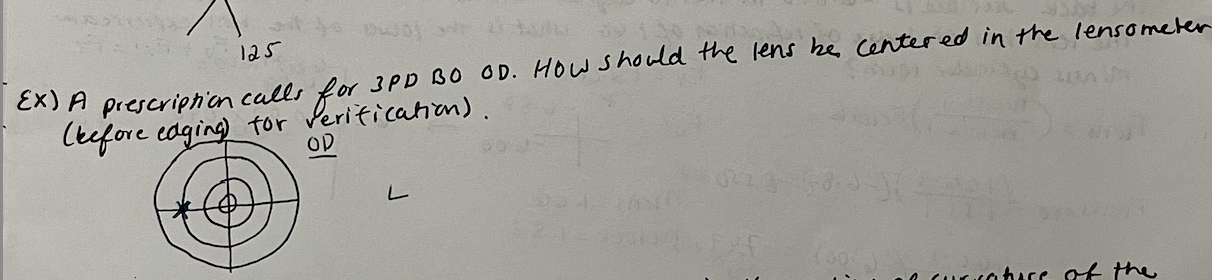 125
Ex) A prescription calls for 3PD BO OD. How should the lens be centered in the lensometer
(before edging) for verification).
OD
L
curvature of the